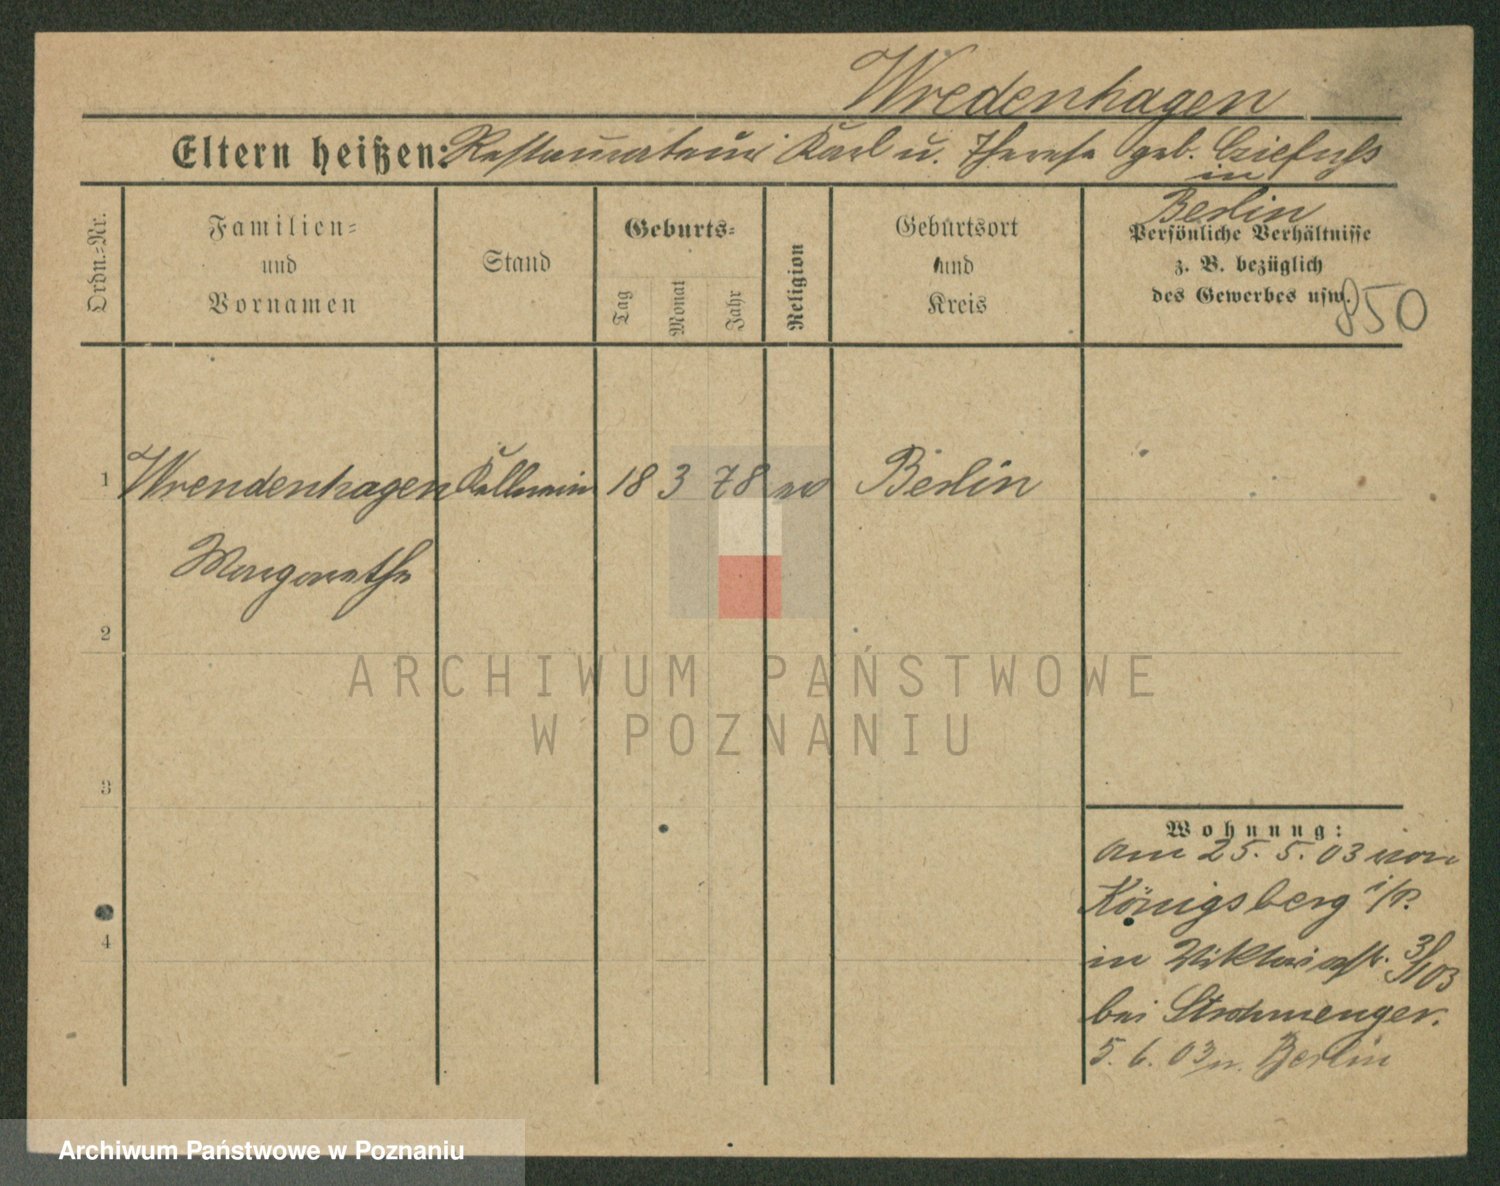 Wredenhagen
Eltern heißen: Restaurateur Karl u. Therese geb.
in
Berlin
Ordn.-Nr.
Familien-
und
Vornamen
Stand
Geburts-
Tag
Monat
Jahr
Religion
Geburtsort
und
Kreis
Persönliche Verhältnisse
z. B. bezüglich
des Gewerbes usw.
850
1 Wrendenhagen Kellnerin 18 3 78 Berlin
Margarethe
2
3
4
Wohnung:
am 25. 5. 03 von
Königsberg i/P.
in
bei Strohmenger.
5. 6. 03 n. Berlin
ARCHIWUM PAŃSTWOWE
W POZNANIU
Archiwum Państwowe w Poznaniu